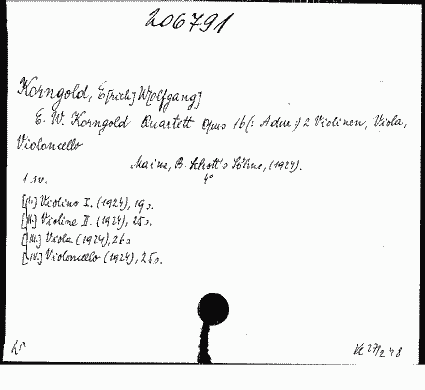 206791
Korngold, E[rich] W[olfgang]
E. W. Korngold Quartett Opus 16 (: Adur :) 2 Violinen, Viola,
Violoncello
Mainz, B. Schott's Söhne, (1924).
4°
1 sv.
[I.] Violino I. (1924), 19 s.
[II.] Violine II. (1924), 25 s.
[III.] Viola (1924), 26 s
[IV.] Violoncello (1924), 25 s.
27/2 48